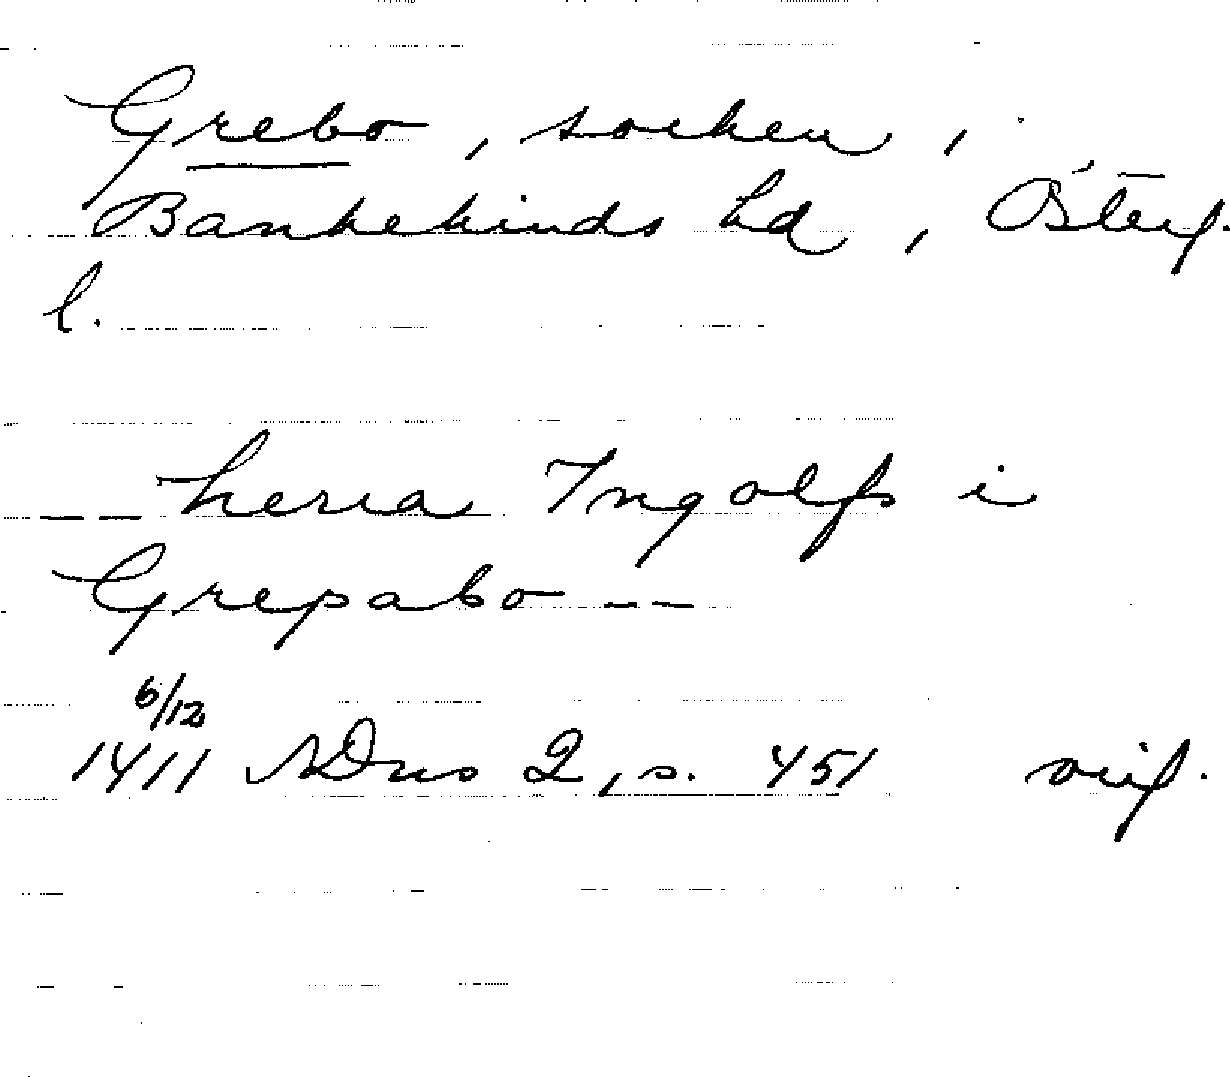 Grebo, socken,
Bankekinds hd, Österg.
l.
-- herra Ingolfs i
Grepabo --
6/12
1411 SDns 2, s. 451 orig.